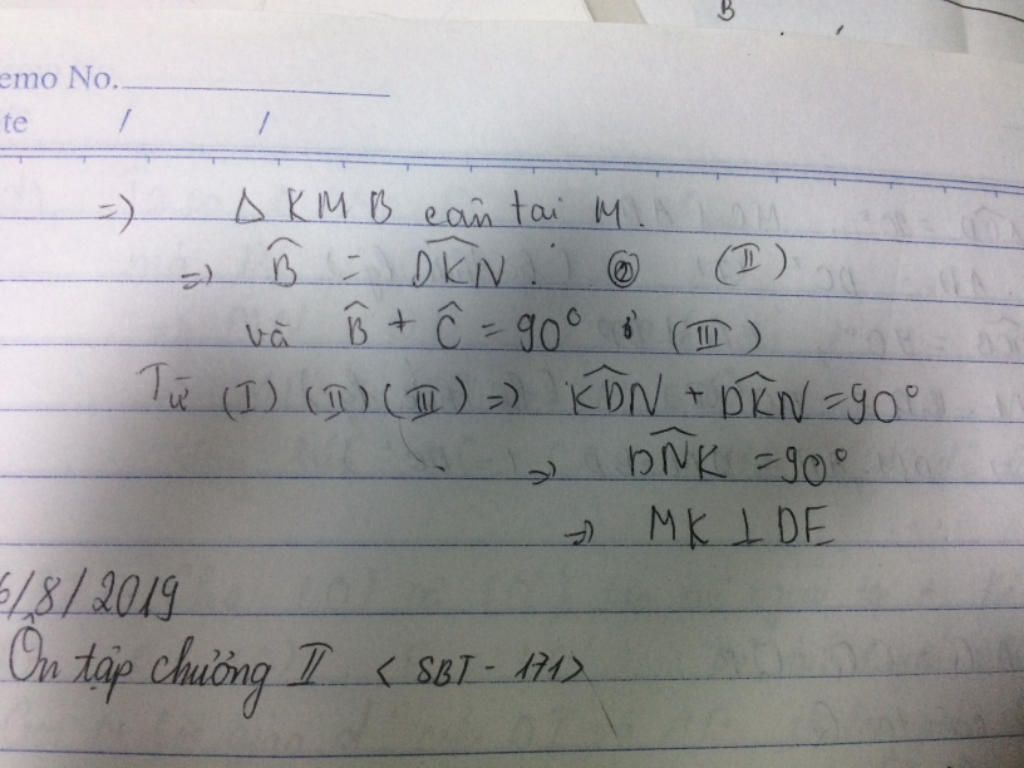 B
emo No.
te / /
=> Δ KMB cân tai M.
=> B̂ = D̂KN. ② (II)
và B̂ + Ĉ = 90° (III)
Từ (I) (II) (III) => K̂DN + D̂KN = 90°
=> DN̂K = 90°
=> MK ⊥ DE
6/8/2019
Ôn tập chương II < SBT - 171>